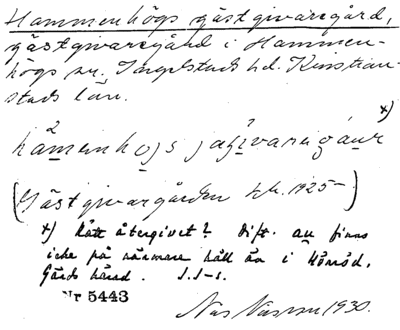 Hammenhögs gästgivaregård,
gästgivaregård i Hammen-
högs sn. Ingelstads hd. Kristian-
stads län.
x)
(Gästgivargården tk. 1925-)
x) Rätt återgivet? Dift. au finns
icke på närmare håll än i Hörröd,
Gärds härad. S.I-s.
Nr 5443
1930.